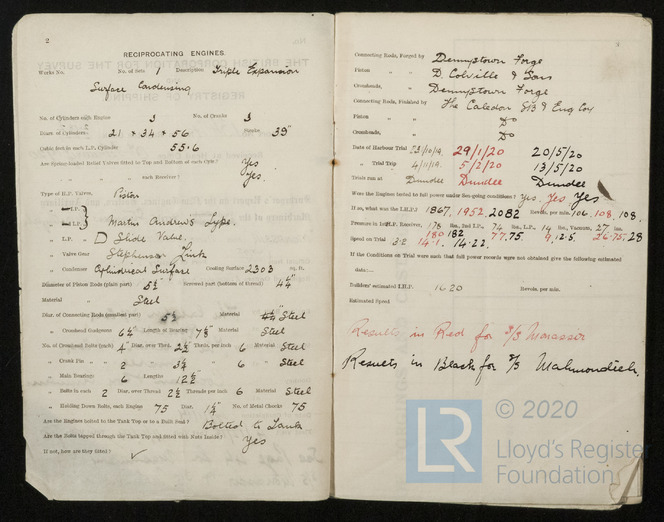 2
RECIPROCATING ENGINES.
Works No. No. of Sets 1 Description Triple Expansion
Surface Condensing
No. of Cylinders each Engine 3 No. of Cranks 3
Diars. of Cylinders 21 × 34 × 56 Stroke 39"
Cubic feet in each L.P. Cylinder 55.6
Are Spring-loaded Relief Valves fitted to Top and Bottom of each Cylr.? Yes
" " each Receiver? Yes.
Type of H.P. Valves, Piston
" L.P. " D Slide Valve.
" Valve Gear Stephenson Link
" Condenser Cylindrical Surface Cooling Surface 2303 sq. ft.
Diameter of Piston Rods (plain part) 5¾ Screwed part (bottom of thread)
Material Steel
Diar. of Connecting Rods (smallest part) Material Steel
" Crosshead Gudgeons Length of Bearing Material Steel
No. of Crosshead Bolts (each) 4 Diar. over Thrd. 2½ Thrds. per inch 6 Material Steel
" Crank Pin " " 2 " " " 6 " Steel
" Main Bearings 6 Lengths 12½
" Bolts in each 2 Diar. over Thread Threads per inch 6 Material Steel
" Holding Down Bolts, each Engine 75 Diar. No. of Metal Chocks 75
Are the Engines bolted to the Tank Top or to a Built Seat? Bolted to Tank
Are the Bolts tapped through the Tank Top and fitted with Nuts Inside? Yes
If not, how are they fitted? ✓
Connecting Rods, Forged by Dennystown Forge
Piston " " D. Colville & Sons
Crossheads, " Dennystown Forge
Connecting Rods, Finished by The Caledon SB & Eng Coy
Piston " " Do
Crossheads, " Do
Date of Harbour Trial 29/1/20 20/5/20
" Trial Trip 4/11/19. 5/2/20 13/5/20
Trials run at Dundee Dundee Dundee
Were the Engines tested to full power under Sea-going conditions? Yes. Yes Yes
If so, what was the I.H.P.? 1867, 1952, 2082 Revols. per min. 106, 108, 108.
Pressure in 1st I.P. Receiver, 178 lbs., 2nd I.P., 74 lbs., L.P., 14 lbs., Vacuum, 27 ins.
180 182 77.75 26.75 28
Speed on Trial 14.1. 14.22.
If the Conditions on Trial were such that full power records were not obtained give the following estimated
data:—
Builders' estimated I.H.P. 1620 Revols. per min.
Estimated Speed
Results in Red for S/S
Results in Black for S/S
LR
© 2020
Lloyd's Register
Foundation